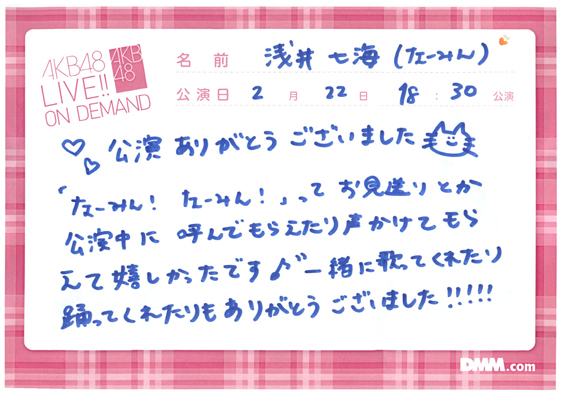 AKB48
LIVE!!
ON DEMAND
AKB
48
名前 浅井 七海 (なーみん)
公演日 2月 22日 18:30 公演
公演 ありがとう ございました
「なーみん! なーみん!」って お見送り とか
公演中に 呼んでもらえたり 声かけて もら
えて 嬉しかったです♪ 一緒に歌ってくれたり
踊ってくれたりも ありがとう ございました!!!!!
DMM.com